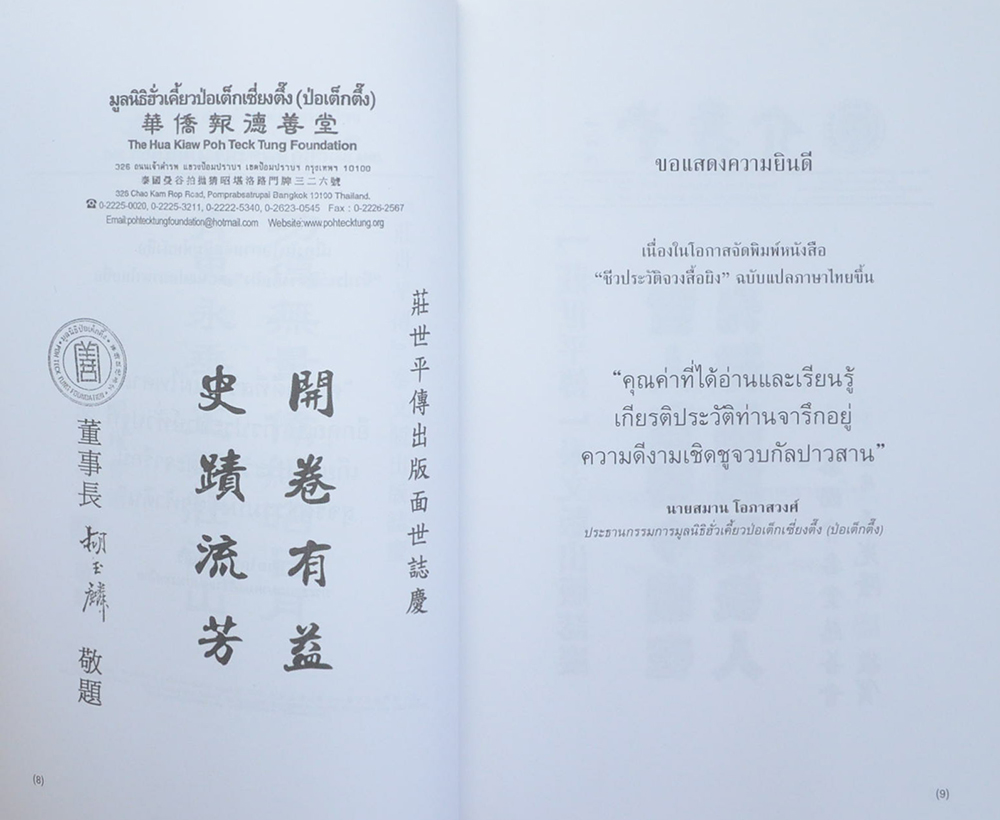 มูลนิธิฮั่วเคี้ยวป่อเต็กเซี่ยงตึ๊ง (ป่อเต็กตึ๊ง)
華僑報德善堂
The Hua Kiaw Poh Teck Tung Foundation
326 ถนนเจ้าคำรพ แขวงป้อมปราบฯ เขตป้อมปราบฯ กรุงเทพฯ 10100
泰國曼谷拍拋猜昭堪洛路門牌三二六號
326 Chao Kam Rop Road, Pomprabsatrupai Bangkok 10100 Thailand.
☎ 0-2225-0020, 0-2225-3211, 0-2222-5340, 0-2623-0545 Fax : 0-2226-2567
Email:pohtecktungfoundation@hotmail.com Website:www.pohtecktung.org
莊世平傳出版面世誌慶
開卷有益
史蹟流芳
董事長 胡玉麟 敬題
(8)
ขอแสดงความยินดี
เนื่องในโอกาสจัดพิมพ์หนังสือ
“ชีวประวัติจวงสื้อผิง” ฉบับแปลภาษาไทยขึ้น
“คุณค่าที่ได้อ่านและเรียนรู้
เกียรติประวัติท่านจารึกอยู่
ความดีงามเชิดชูจวบกัลปาวสาน”
นายสมาน โอภาสวงศ์
ประธานกรรมการมูลนิธิฮั่วเคี้ยวป่อเต็กเซี่ยงตึ๊ง (ป่อเต็กตึ๊ง)
(9)